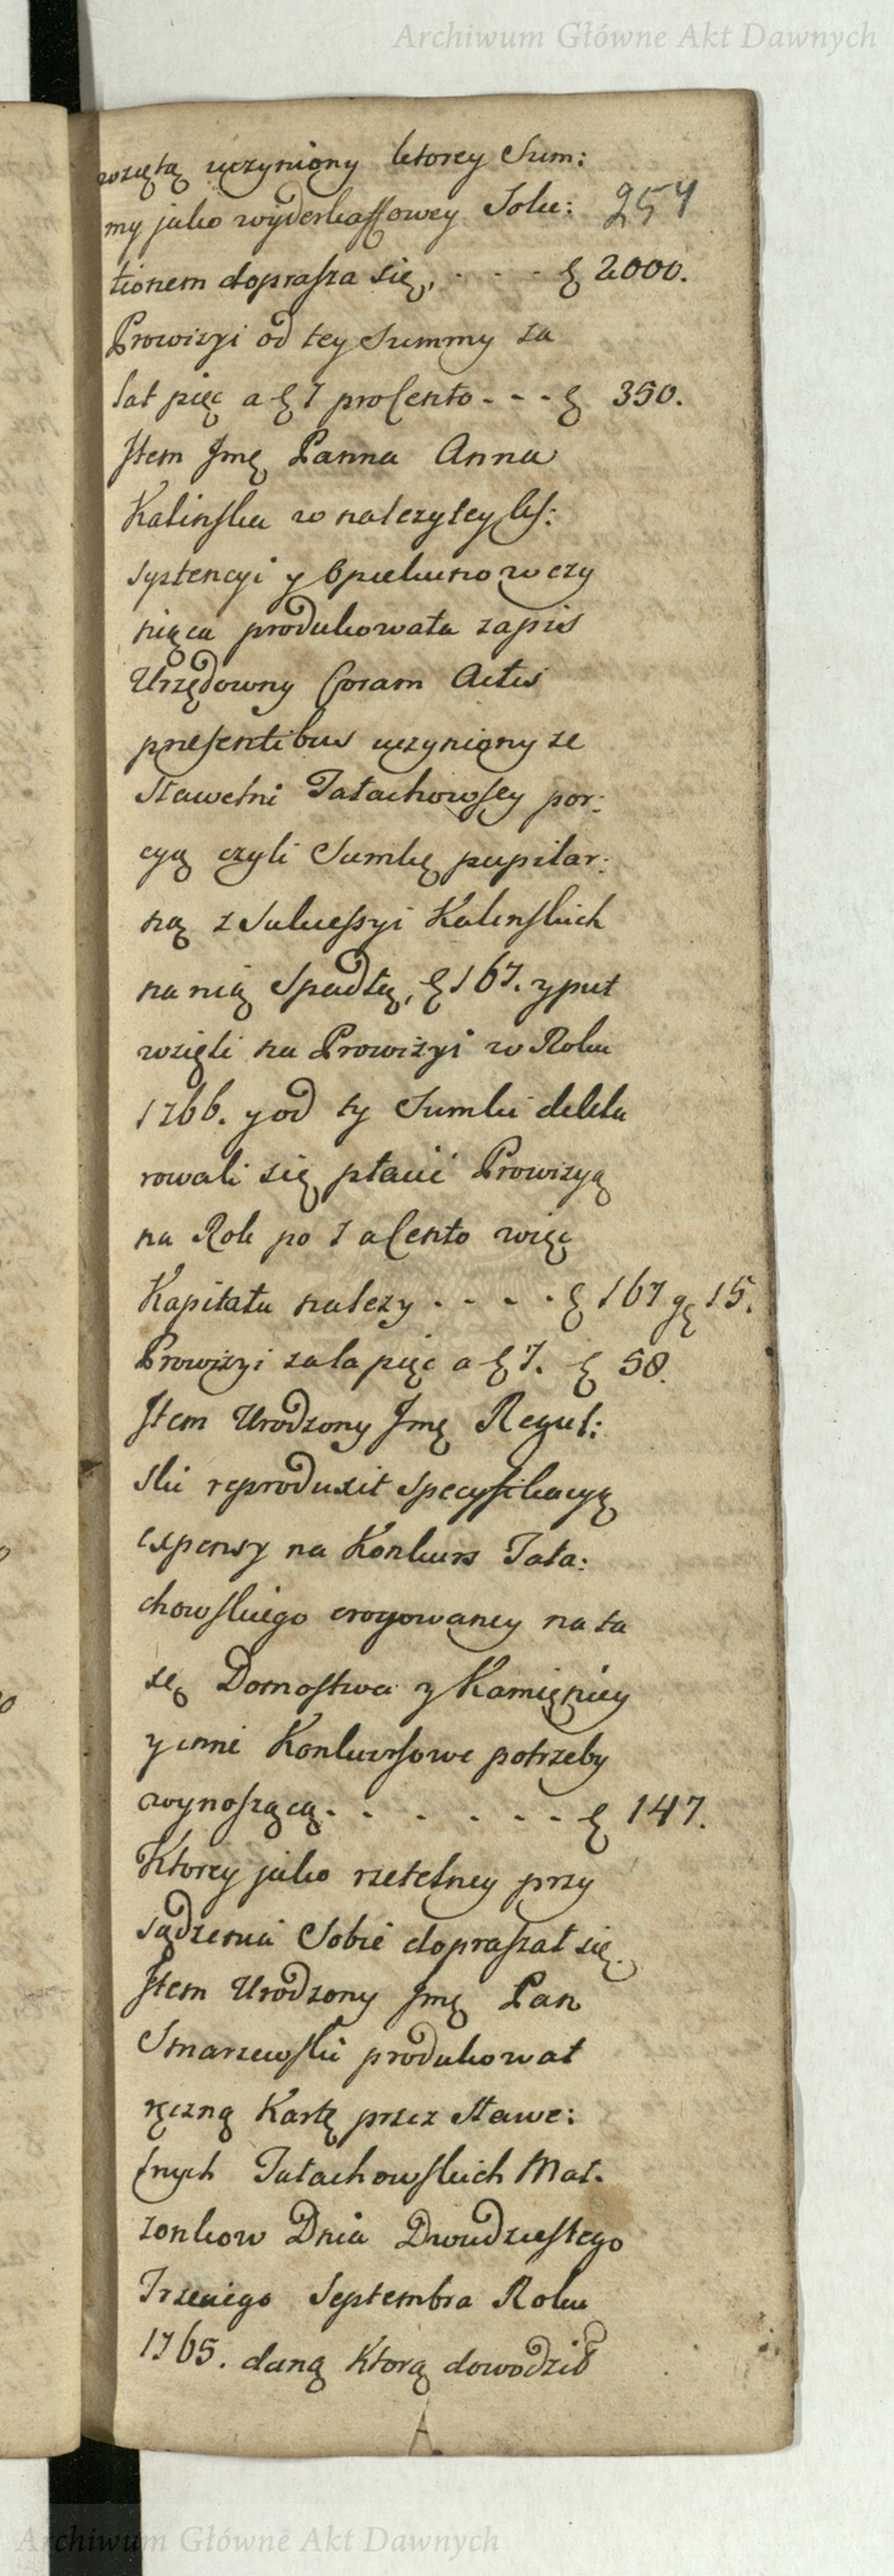 Archiwum Główne Akt Dawnych
wziętą uczyniony ktorey Sum:
my jako wyderkaffowey Solu: 254
tionem doprasza się, - - - - 2000.
Prowizyi od tey Summy za
lat pięc a 7 pro Cento - - - 350.
Item Jmę Panna Anna
Kalinska w nalezytey As:
systencyi y Opiekunow czy
niąca produkowała zapis
Urzędowny Coram Actis
præsentibus uczyniony ze
Sławetni Tałachowscy por:
cyą czyli Sumkę pupilar:
ną z Sukcessyi Kalinskich
na nią Spadłą, 167. y puł
wzieli na Prowizyi w Roku
1766. y od ty Sumki dekla
rowali się płacić Prowizyą
na Rok po 7 a Cento więc
Kapitału nalezy - - - - 167 gę 15.
Prowizyi za la pięc a 7. 58.
Item Urodzony Jmę Regul:
ski reproduxit Specyfikacyą
expensy na Konkurs Tała:
chowskiego erogowaney na ta
xę Domostwa y Kamienicy
y inne Konkursowe potrzeby
wynoszącą - - - - - - 147.
Ktorey jako rzetelney przy
sądzenia Sobie dopraszał się.
Item Urodzony Jmę Pan
Smarzewski produkował
ręczną Kartę przez Sławe:
tnych Tałachowskich Mał.
zonkow Dnia Dwudziestego
Trzeciego Septembra Roku
1765. daną Ktorą dowodził
A
Archiwum Główne Akt Dawnych